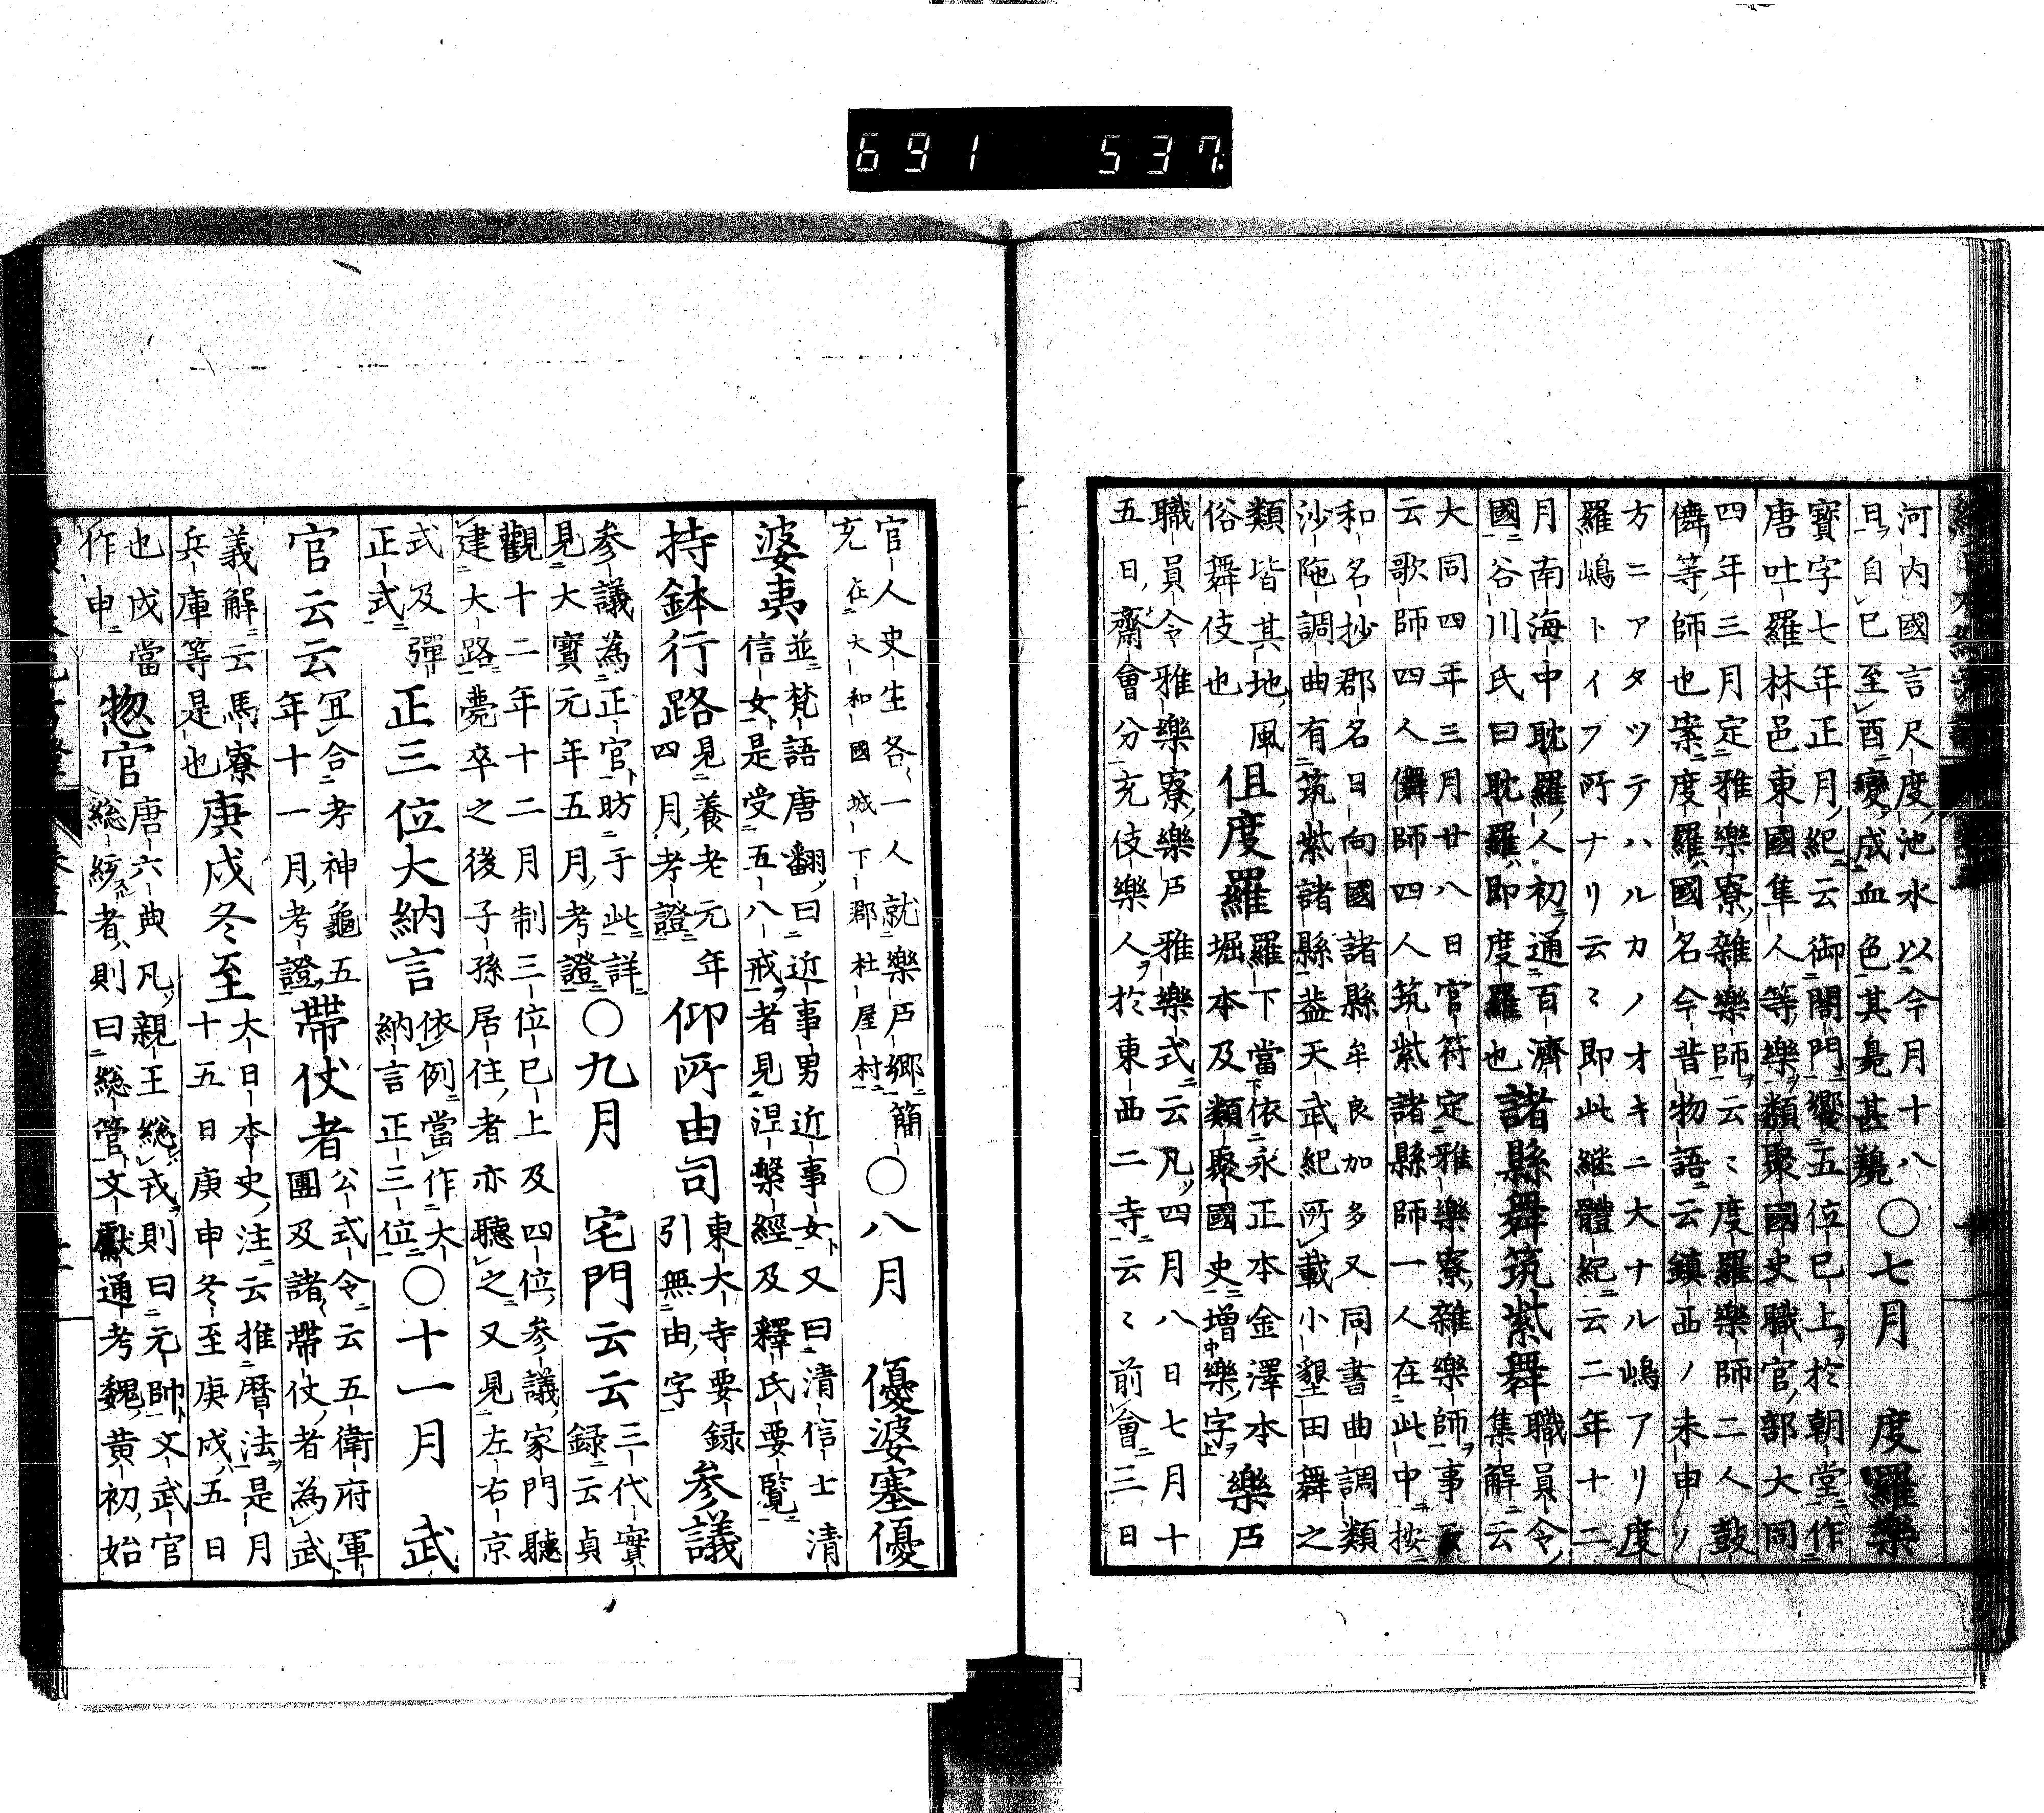 691 537
河内國言尺度池水以今月十八
日自巳至酉變成血色其鳧甚
〇七月 度羅樂
寳字七年正月紀云御閤門饗五位已上於朝堂作
唐吐羅林邑東國隼人等樂類聚國史職官部大同
四年三月定雅樂寮雜樂師云〻度羅樂師二人鼓
儛等師也案度羅國名今昔物語云鎮西ノ未申ノ
方ニアタツテハルカノオキニ大ナル嶋アリ度
羅嶋トイフ所ナリ云〻即此継體紀云二年十二
月南海中耽羅人初通百濟
國谷川氏曰耽羅即度羅也
諸縣舞筑紫舞
職員令
集解云
大同四年三月廿八日官符定雅樂寮雜樂師事
云歌師四人儛師四人筑紫諸縣師一人在此中按
和名抄郡名日向國諸縣牟良加多又同書曲調類
沙陁調曲有筑紫諸縣益天武紀所載小墾田舞之
類皆其地風
俗舞伎也
伹度羅
羅下當依永正本金澤本
堀本及類聚國史増樂字
樂戸
職員令雅樂寮樂戸雅樂式云凡四月八日七月十
五日齋會分充伎樂人於東西二寺云〻前會三日
官人史生各一人就樂戸郷簡
充在大和國城下郡杜屋村
〇八月 優婆塞優
婆夷
並梵語唐翻曰近事男近事女又曰清信士清
信女是受五八戒者見涅槃經及釋氏要覧
持鉢行路
見養老元年
四月考證
仰所由司
東大寺要録
引無由字
參議
参議為正官昉于此詳
見大寳元年五月考證
〇九月 宅門云云
三代實
録云貞
觀十二年十二月制三位已上及四位参議家門聽
建大路薨卒之後子孫居住者亦聽之又見左右京
式及彈
正式
正三位大納言
依例當作大
納言正三位
〇十一月 武
官云云
冝合考神龜五
年十一月考證
帶仗者
公式令云五衛府軍
團及諸帶仗者為武
義解云馬寮
兵庫等是也
庚戌冬至
大日本史注云推暦法是月
十五日庚申冬至庚戌五日
也戌當
作申
惣官
唐六典凡親王総戎則曰元帥文武官
総統者則曰総管文獻通考魏黄初始